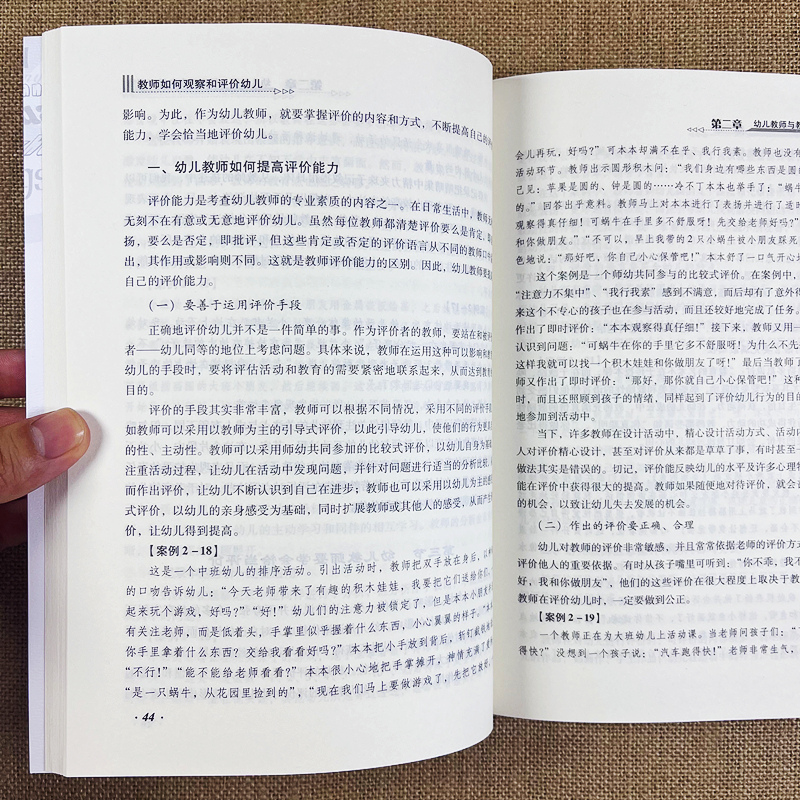 教师如何观察和评价幼儿
影响。为此，作为幼儿教师，就要掌握评价的内容和方式，不断提高自己的
能力，学会恰当地评价幼儿。
一、幼儿教师如何提高评价能力
评价能力是考查幼儿教师的专业素质的内容之一。在日常生活中，教师
无刻不在有意或无意地评价幼儿。虽然每位教师都清楚评价要么是肯定，即
扬，要么是否定，即批评，但这些肯定或否定的评价语言从不同的教师口中
出，其作用或影响则不同。这就是教师评价能力的区别。因此，幼儿教师要
自己的评价能力。
（一）要善于运用评价手段
正确地评价幼儿并不是一件简单的事。作为评价者的教师，要站在和被
者——幼儿同等的地位上考虑问题。具体来说，教师在运用这种可以影响和
幼儿的手段时，要将评估活动和教育的需要紧密地联系起来，从而达到教
目的。
评价的手段其实非常丰富，教师可以根据不同情况，采用不同的评价手
如教师可以采用以教师为主的引导式评价，以此引导幼儿，使他们的行为更
的性、主动性。教师可以采用师幼共同参加的比较式评价，以幼儿自身为
注重活动过程，让幼儿在活动中发现问题，并针对问题进行适当的分析比较，
而作出评价，让幼儿不断认识到自己在进步；教师也可以采用以幼儿为主的
式评价，以幼儿的亲身感受为基础，同时扩展教师或其他人的感受，从而产生
价，让幼儿得到提高。
【案例2-18】
这是一个中班幼儿的排序活动。引出活动时，教师把双手放在身后，以
的口吻告诉幼儿：“今天老师带来了有趣的积木娃娃，我要把它们送给你们，
起来玩个游戏，好吗？”“好！”幼儿们的注意力被锁定了，但是本本小朋友
有关注老师，而是低着头，手掌里似乎握着什么东西，小心翼翼的样子。“本
你手里拿着什么东西？交给我看看好吗？”本本把小手放到背后，斩钉截铁
“不行！”“能不能给老师看看？”本本很小心地把手掌摊开，神情充满了
“是一只蜗牛，从花园里捡到的”，“现在我们马上要做游戏了，先把它放
·44·
第二章 幼儿教师与
会儿再玩，好吗？”可本本却满不在乎、我行我素。教师也没有
活动环节。教师出示圆形积木问：“我们身边有哪些东西是圆的
己见：苹果是圆的、钟是圆的……冷不丁本本也举手了：“蜗牛
的。”回答出乎意料。教师马上对本本进行了表扬并进行了适时
观察得真仔细！可蜗牛在手里多不舒服呀！先交给老师好吗？
和你做朋友。”“不可以，早上我带的2只小蜗牛被小朋友踩死
色地说：“那好吧，你自己小心保管吧！”本本舒了一口气开心地
这个案例是一个师幼共同参与的比较式评价。在案例中，
“注意力不集中”、“我行我素”感到不满意，而后却有了意外
来这个不专心的孩子也在参与活动，而且还较好地完成了任务。
作出了即时评价：“本本观察得真仔细！”接下来，教师又用一
认识到问题：“可蜗牛在你的手里它多不舒服呀！为什么不先
这样我就可以找一个积木娃娃和你做朋友了呀！”最后当教师了
师又作出了即时评价：“那好，那你就自己小心保管吧！”这种
时，而且还照顾到孩子的情绪，同样起到了评价幼儿行为的目的
地参加到活动中。
当下，许多教师在设计活动中，精心设计活动方式、活动内
人对评价精心设计，甚至对评价从来都是草草了事，有时甚至一
做法其实是错误的。切记，评价能反映幼儿的水平及许多心理特
能在评价中获得很大的提高。教师如果随便地对待评价，就会
的机会，以致让幼儿失去发展的机会。
（二）作出的评价要正确、合理
幼儿对教师的评价非常敏感，并且常常依据老师的评价方式
评价他人的重要依据。有时从孩子嘴里可听到：“你不乖，我不
好、我和你做朋友”，他们的这些评价在很大程度上取决于教
教师在评价幼儿时，一定要做到公正。
【案例2-19】
一个教师正在为大班幼儿上活动课。当老师问孩子们：“
得快？”没想到一个孩子说：“汽车跑得快！”老师非常生气，